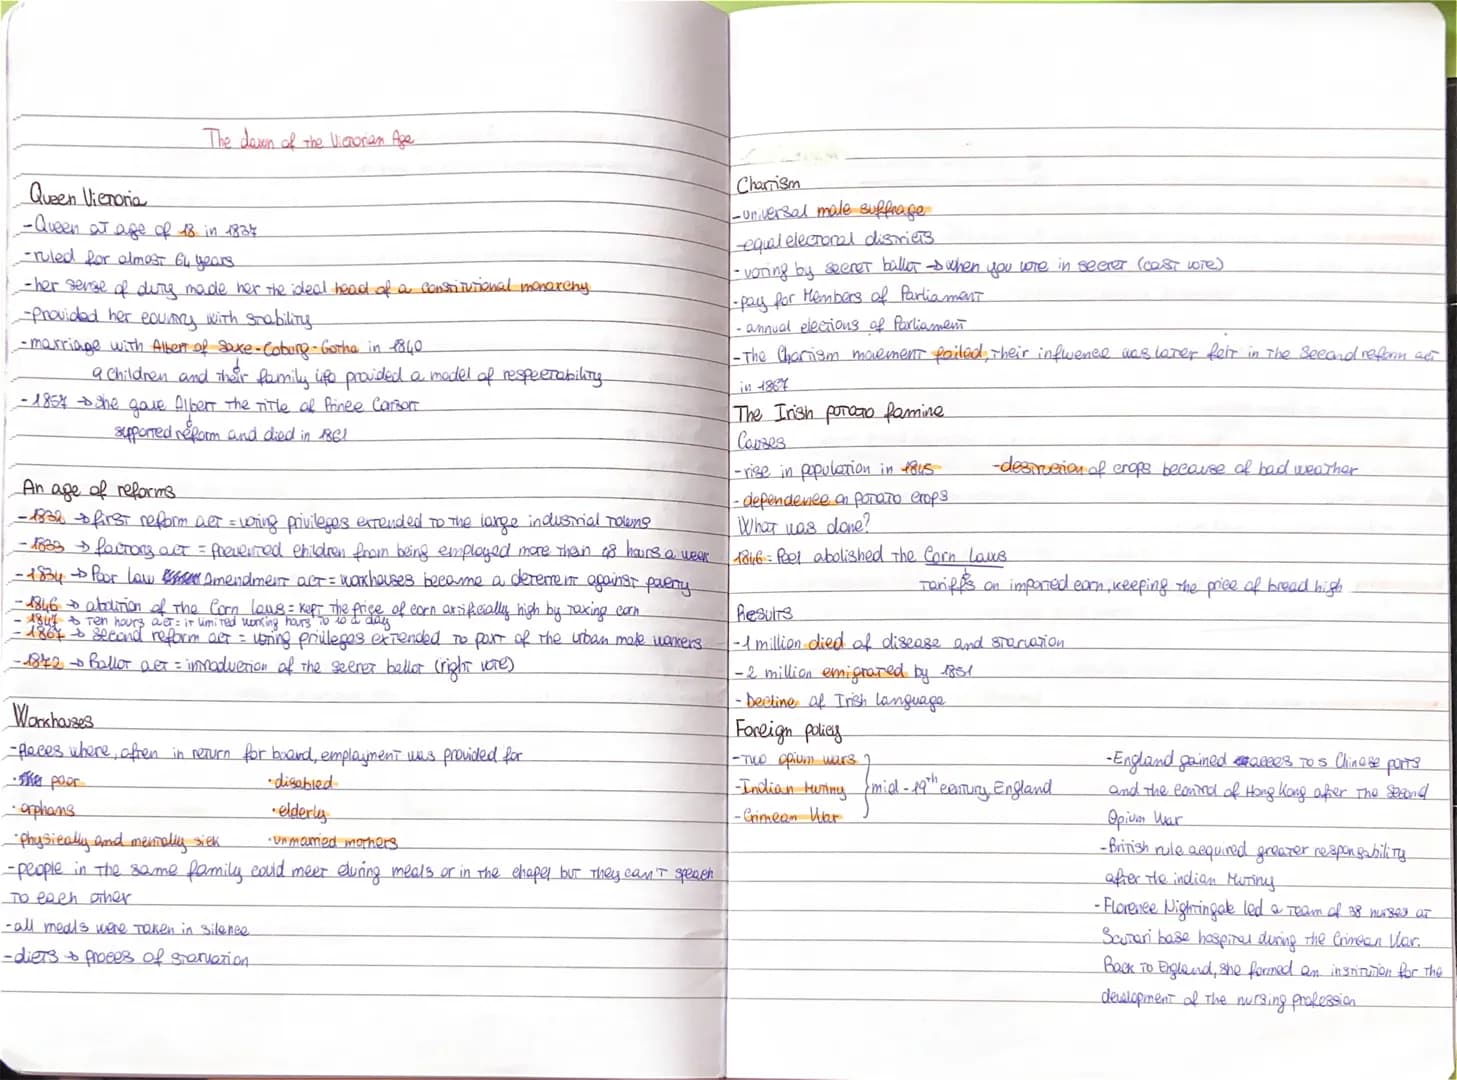 The dawn of the Victorian Age
Queen Victoria
-Queen at age of 18 in 1837
-ruled for almost 64 years
-her sense of duty made her the ideal head of a constitutional monarchy
-provided her country with stability
-marriage with Albert of Saxe-Coburg-Gotha in 1840
9 children and their family life provided a model of respectability
-1857 → she gave Albert the title of Prince Consort
supported reform and died in 1861
An age of reforms
-1832 → first reform act = voting privileges extended to the large industrial towns
-1833 → factory act = prevented children from being employed more than 48 hours a week
-1834 → Poor law Amendment act = workhouses became a deterrent against poverty
-1846 → abolition of the Corn laws = kept the price of corn artificially high by taxing corn
-1847 → Ten hours act = it limited working hours to 10 a day
-1867 → second reform act = voting privileges extended to part of the urban male workers
-1872 → Ballot act = introduction of the secret ballot (right vote)
Workhouses
-places where, often in return for board, employment was provided for
· poor ·disabled
· orphans ·elderly
·physically and mentally sick ·unmarried mothers
-people in the same family could meet during meals or in the chapel but they can't speach
to each other
-all meals were taken in silence
-diets → proces of starvation
Chartism
-universal male suffrage
-equal electoral districts
-voting by secret ballot → when you vote in secret (cast vote)
-pay for Members of Parliament
-annual elections of Parliament
-the Chartism movement failed, their influence was later felt in the Second reform act
in 1867
The Irish potato famine
Causes
-rise in population in 1845 -destruction of crops because of bad weather
-dependence on potato crops
What was done?
1846 = Peel abolished the Corn laws
tariffs on imported corn, keeping the price of bread high
Results
-1 million died of disease and starvation
-2 million emigrated by 1851
-Decline of Irish language
Foreign policy
-Two opium wars
-Indian Mutiny } mid-19th century England
-Crimean War
-England gained access to 5 Chinese ports
and the control of Hong Kong after the Second
Opium War
-British rule acquired greater responsability
after the indian Mutiny
-Florence Nightingale led a team of 38 nurses at
Scutari base hospital during the Crimean War.
Back to England, she formed an institution for the
development of the nursing profession